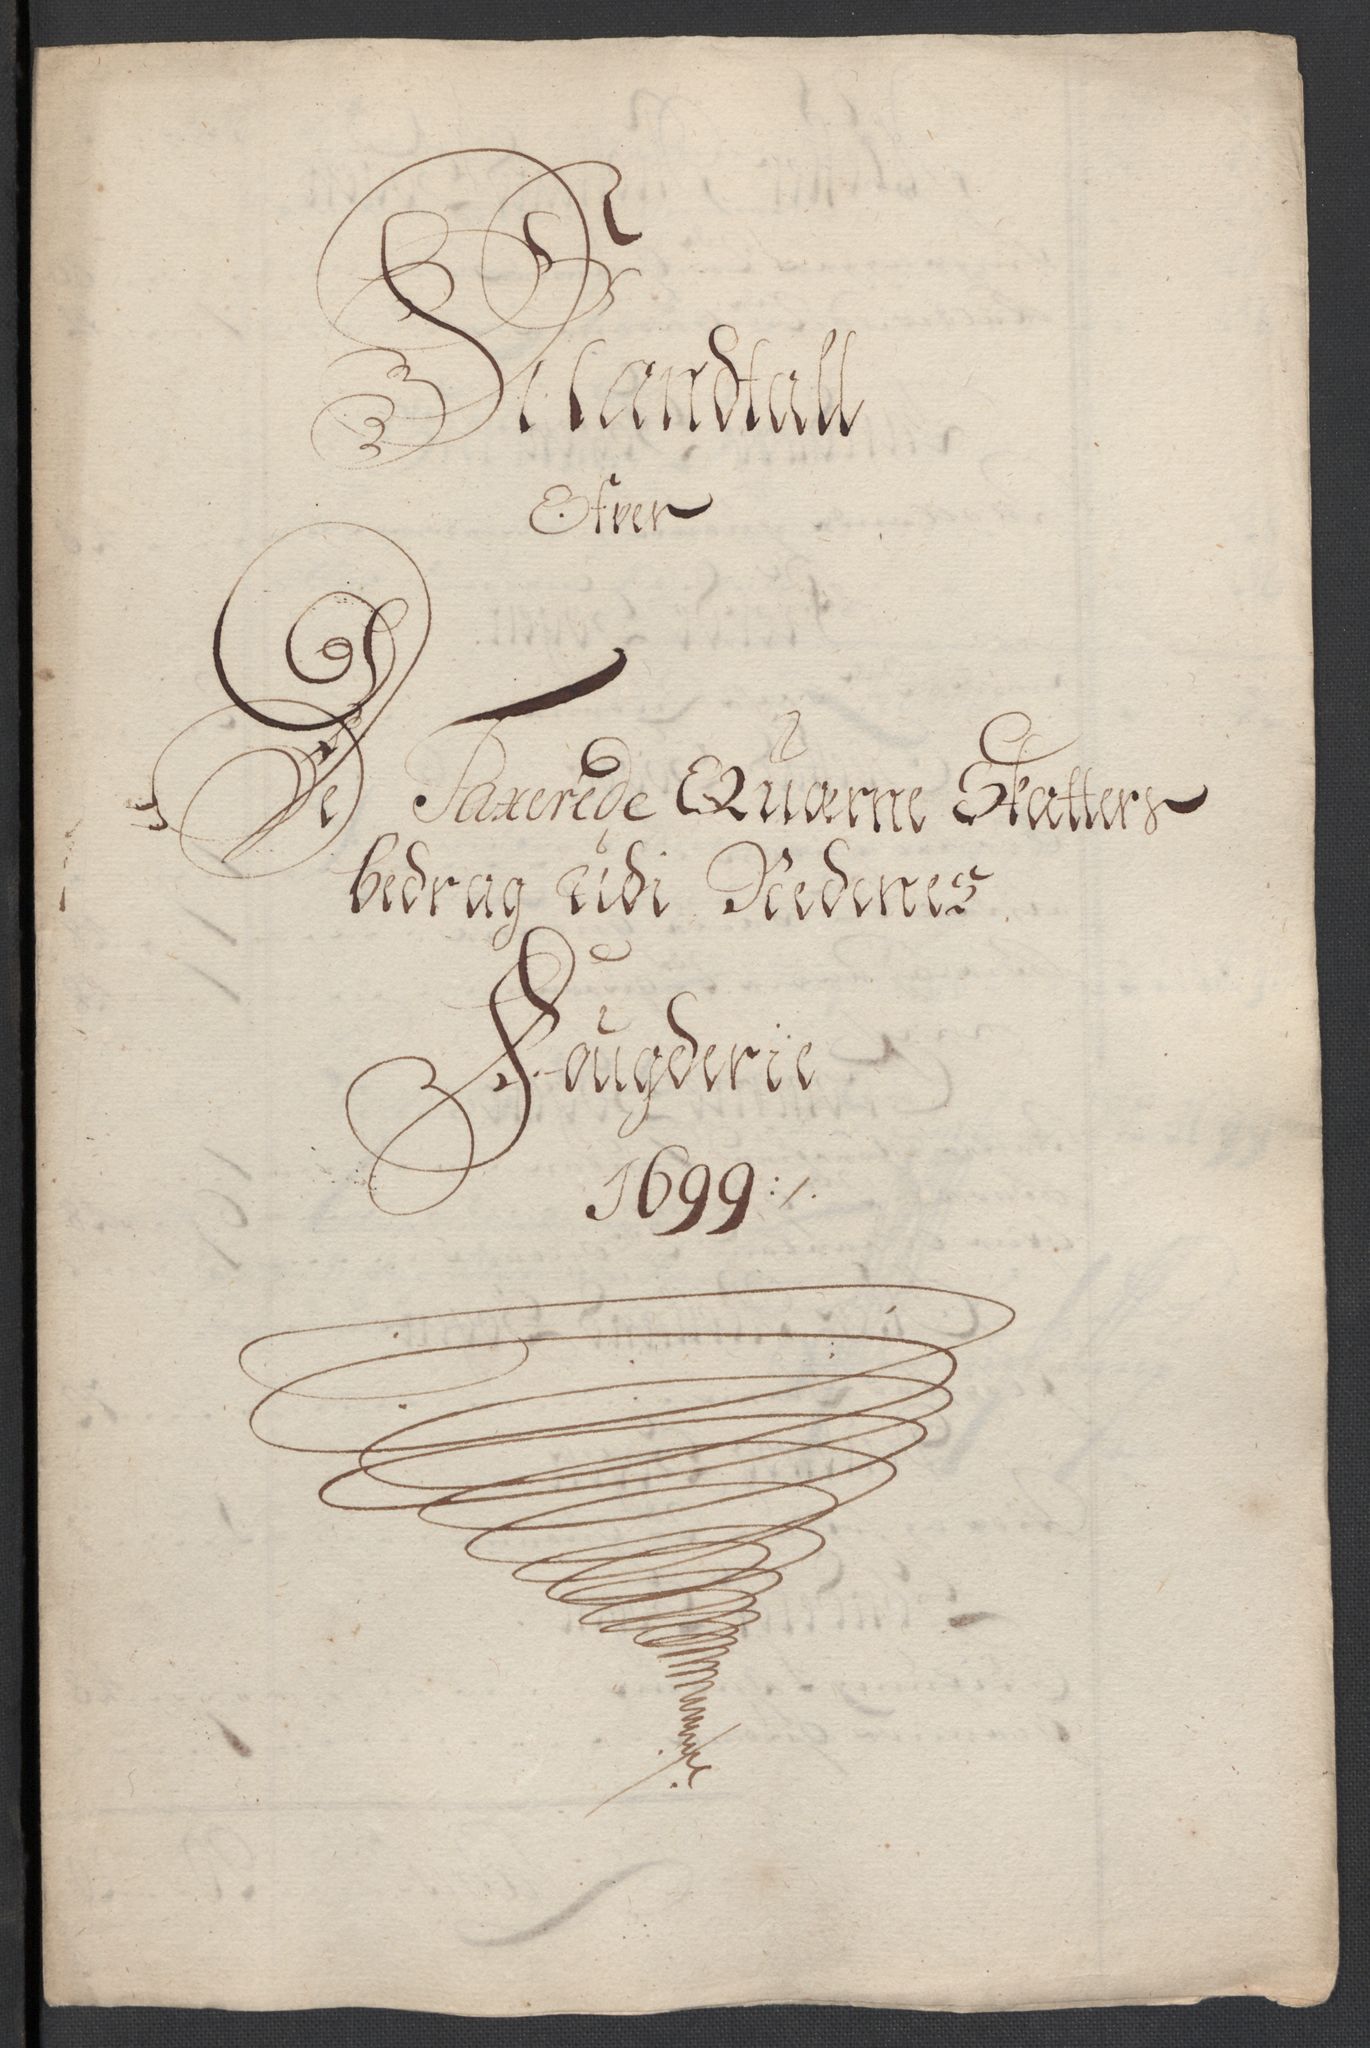 Mandtall
Ofver
De Taxerede Quærne Skatters
bedrag udi Nedenes
Fougderie
1699 :/.